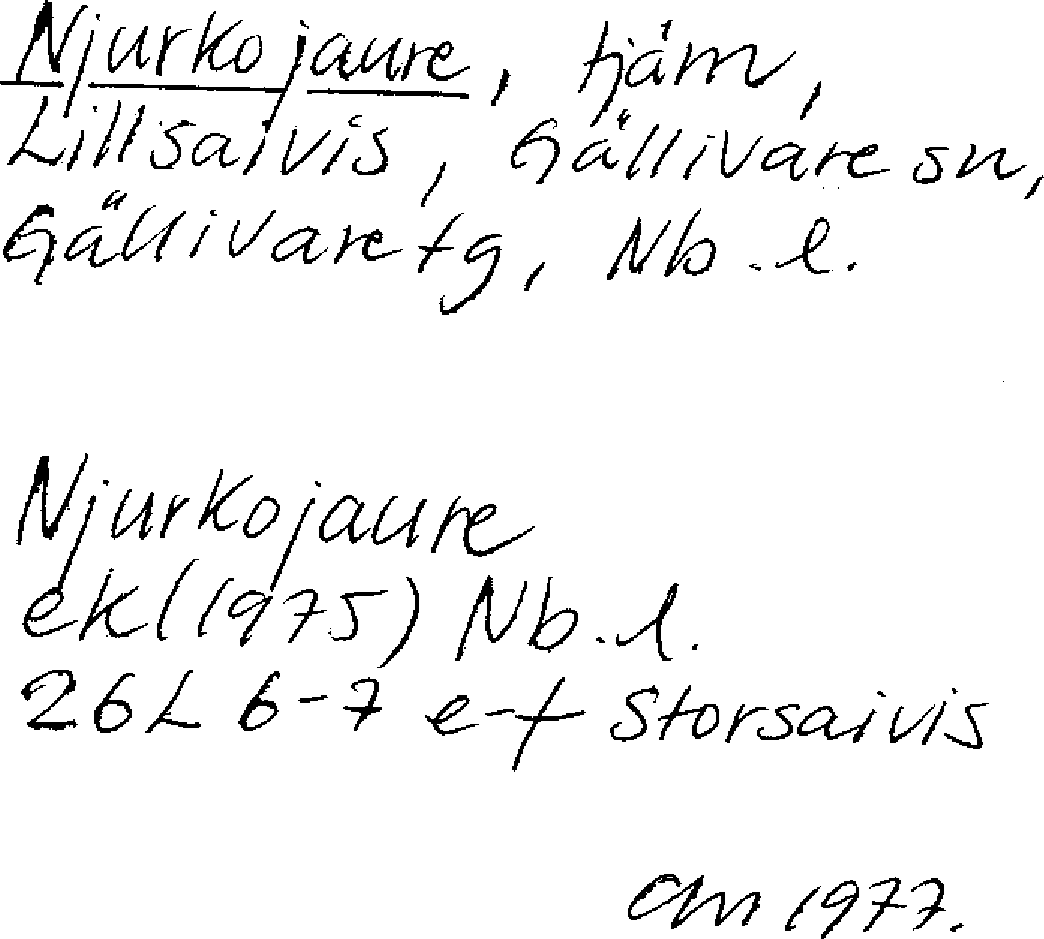 Njurkojaure, tjärn,
Lillsaivis, Gällivare sn,
Gällivare tg, Nb. l.
Njurkojaure
ek (1975) Nb. l.
26L 6-7 e-f Storsaivis
1977.